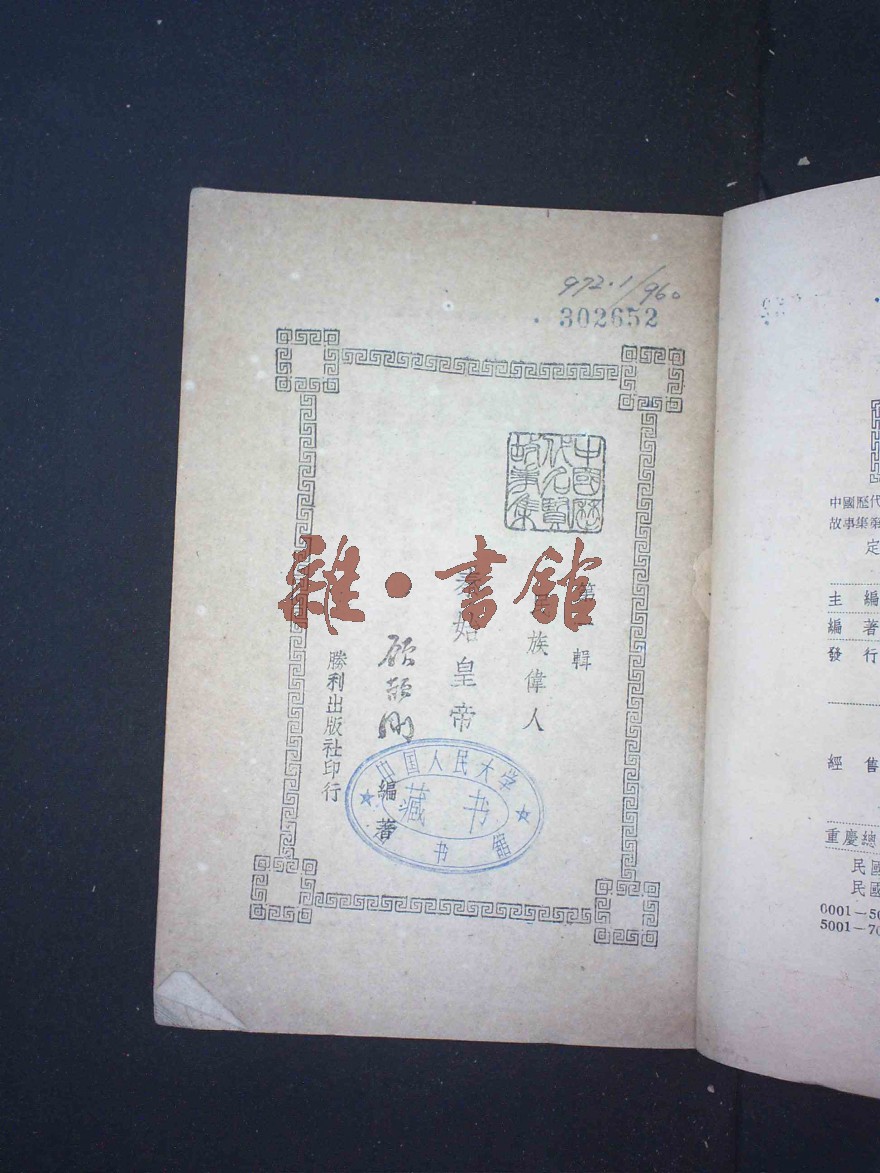 972.1/960
302652
中國歷
代名賢
故事集
第一輯
族偉人
秦始皇帝
顧頡剛
編著
勝利出版社印行
中国人民大学
藏书
书馆
雜·書館
中國歷代
故事集第
定
主編
編著
發行
經售
重慶總
民國
民國
0001—50
5001—70